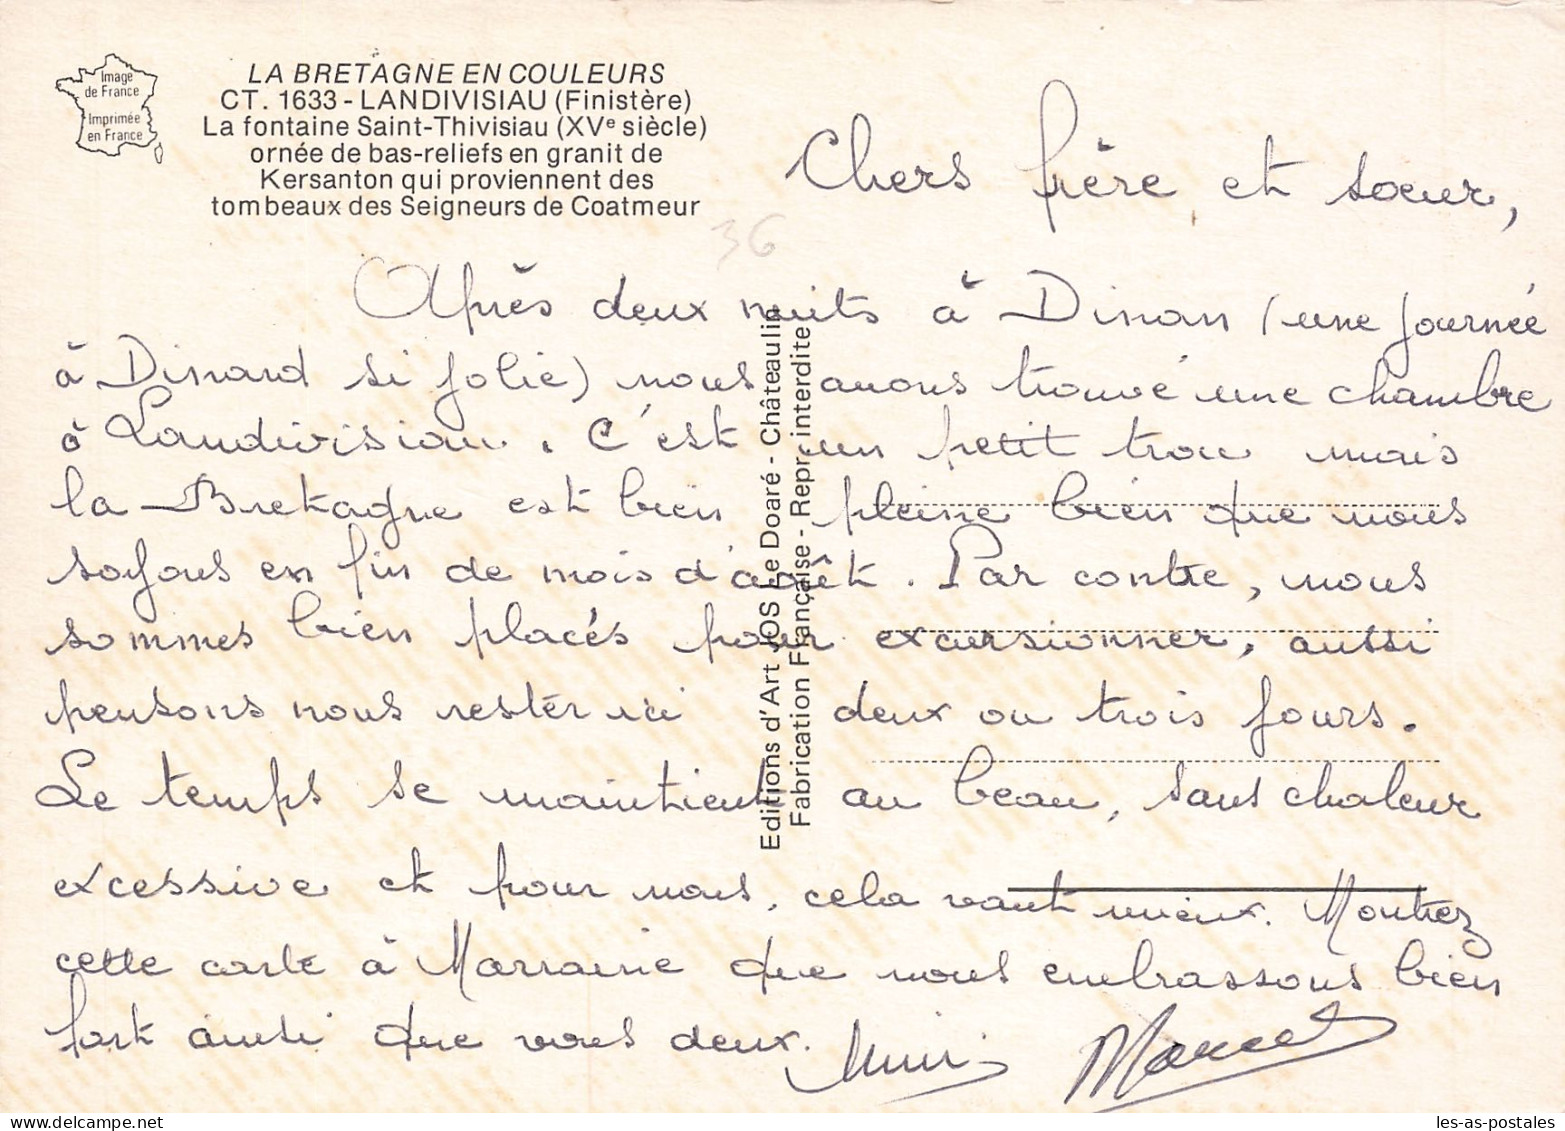 Image
de France
Imprimée
en France
LA BRETAGNE EN COULEURS
CT. 1633 - LANDIVISIAU (Finistère)
La fontaine Saint-Thivisiau (XVe siècle)
ornée de bas-reliefs en granit de
Kersanton qui proviennent des
tombeaux des Seigneurs de Coatmeur
36
Chers frère et sœur,
Après deux nuits à Dinan (une journée
à Dinard si jolie) nous avons trouvé une chambre
à Landivisiau. C'est un petit trou mais
la Bretagne est bien pleine bien que nous
soyons en fin de mois d'août. Par contre, nous
sommes bien placés pour excursionner, aussi
pensons nous rester ici deux ou trois jours.
Le temps se maintient au beau, sans chaleur
excessive et pour nous, cela vaut mieux. Montrez
cette carte à Marraine que nous embrassons bien
fort ainsi que vous deux. Mimi Marcel
Editions d'Art JOS Le Doaré - Châteaulin
Fabrication Française - Repr. interdite
les-as-postales